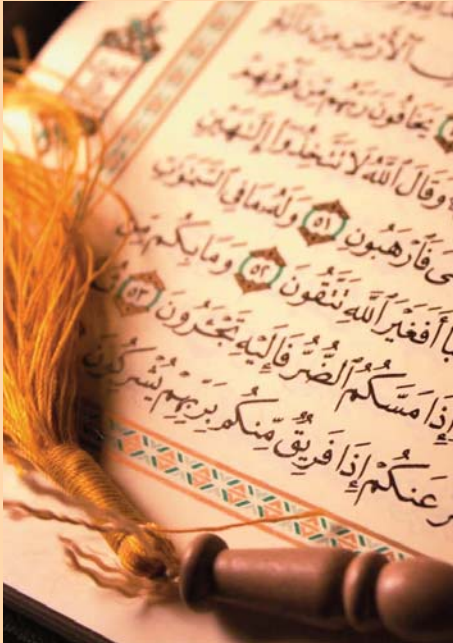 ٱلۡأَرۡضِ مِن
يَخَافُونَ رَبَّهُم مِّن فَوۡقِهِمۡ
وَقَالَ ٱللَّهُ لَا تَتَّخِذُوٓاْ إِلَٰهَيۡنِ
فَٱرۡهَبُونِ ٥١ وَلَهُۥ مَا فِي ٱلسَّمَٰوَٰتِ
أَفَغَيۡرَ ٱللَّهِ تَتَّقُونَ ٥٢ وَمَا بِكُم مِّن
إِذَا مَسَّكُمُ ٱلضُّرُّ فَإِلَيۡهِ تَجۡـَٔرُونَ ٥٣
عَنكُمۡ إِذَا فَرِيقٞ مِّنكُم بِرَبِّهِمۡ يُشۡرِكُونَ